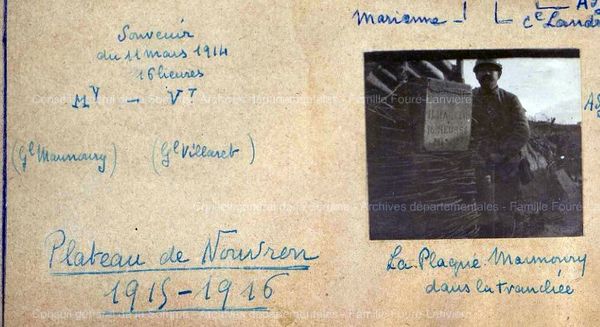 Souvenir
du 11 mars 1914
16 heures
My — VT
(Gl Maunoury) (Gl Villaret)
Plateau de Nouvron
1915-1916
Marienne
Cl Land
La Plaque Maunoury
dans la tranchée
16 HEURES
Conseil général de la Somme - Archives départementales - Famille Fouré-Lanvière
Conseil général de la Somme - Archives départementales - Famille Fouré-Lanvière
Conseil général de la Somme - Archives départementales - Famille Fouré-Lanvière